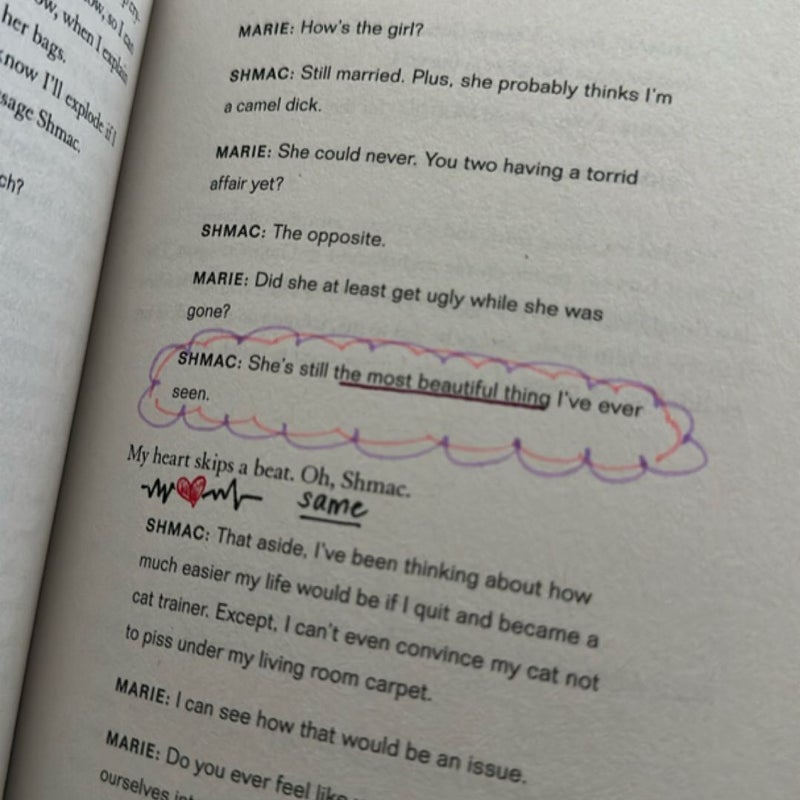 ow, so I can
ow, when I explain
her bags.
know I'll explode if I
sage Shmac.
ch?
MARIE: How's the girl?
SHMAC: Still married. Plus, she probably thinks I'm
a camel dick.
MARIE: She could never. You two having a torrid
affair yet?
SHMAC: The opposite.
MARIE: Did she at least get ugly while she was
gone?
SHMAC: She's still the most beautiful thing I've ever
seen.
My heart skips a beat. Oh, Shmac.
same
SHMAC: That aside, I've been thinking about how
much easier my life would be if I quit and became a
cat trainer. Except, I can't even convince my cat not
to piss under my living room carpet.
MARIE: I can see how that would be an issue.
MARIE: Do you ever feel like
ourselves